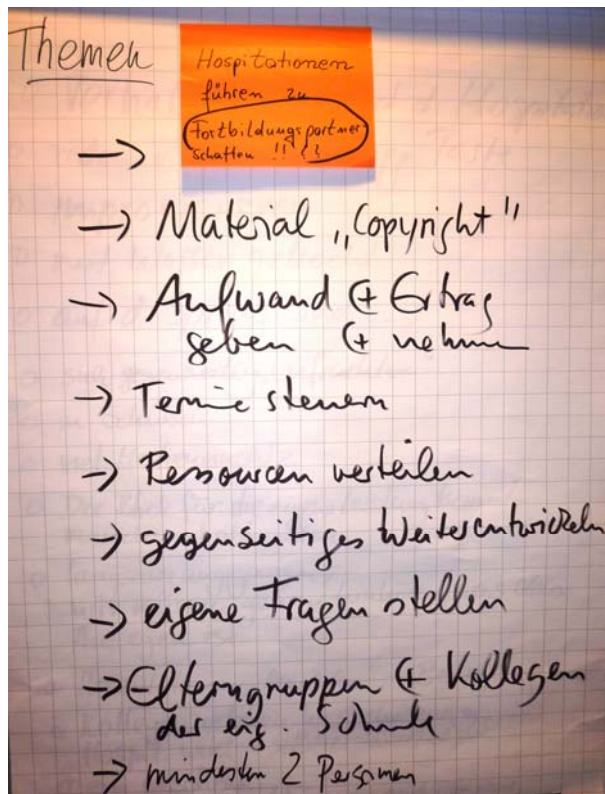 Themen
Hospitationen
führen zu
Fortbildungspartner
schaften !! ??
→
→ Material „Copyright"
→ Aufwand & Ertrag
geben & nehmen
→ Termine steuern
→ Ressourcen verteilen
→ gegenseitiges Weiterentwickeln
→ eigene Fragen stellen
→ Elterngruppen & Kollegen
der eig. Schule
→ mindesten 2 Personen